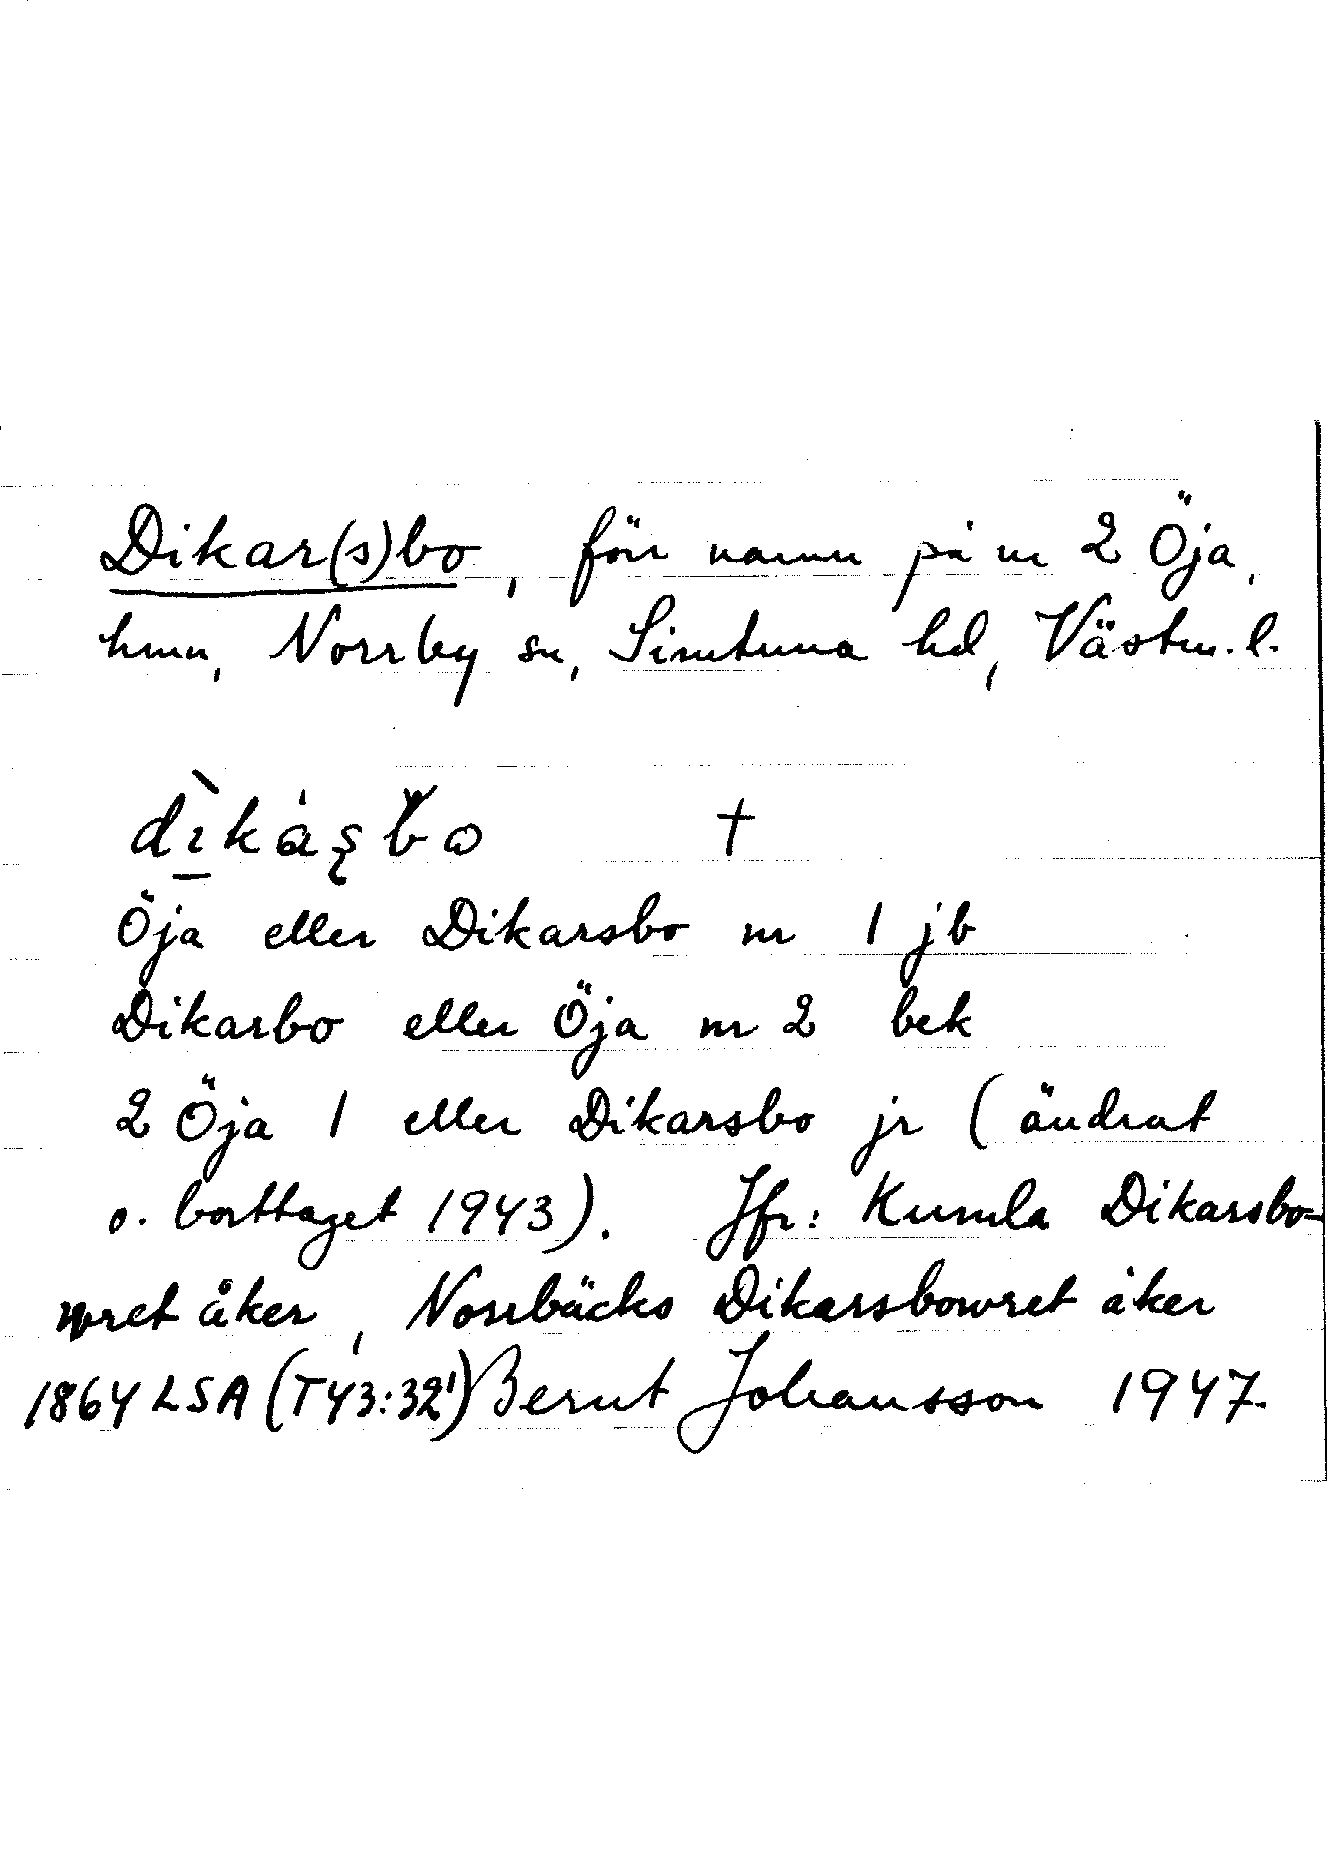 Dikar(s)bo, förr namn på nr 2 Öja,
hmn, Norrby sn, Simtuna hd, Västm. l.
dìkáşbo †
Öja eller Dikarsbo nr 1 jb
Dikarbo eller Öja nr 2 bek
2 Öja 1 eller Dikarsbo jr (ändrat
o. borttaget 1943). Jfr: Kumla Dikarsbo=
wret åker, Norrbäcks Dikarsbowret åker
1864 LSA (T43:32¹) Bernt Johansson 1947.